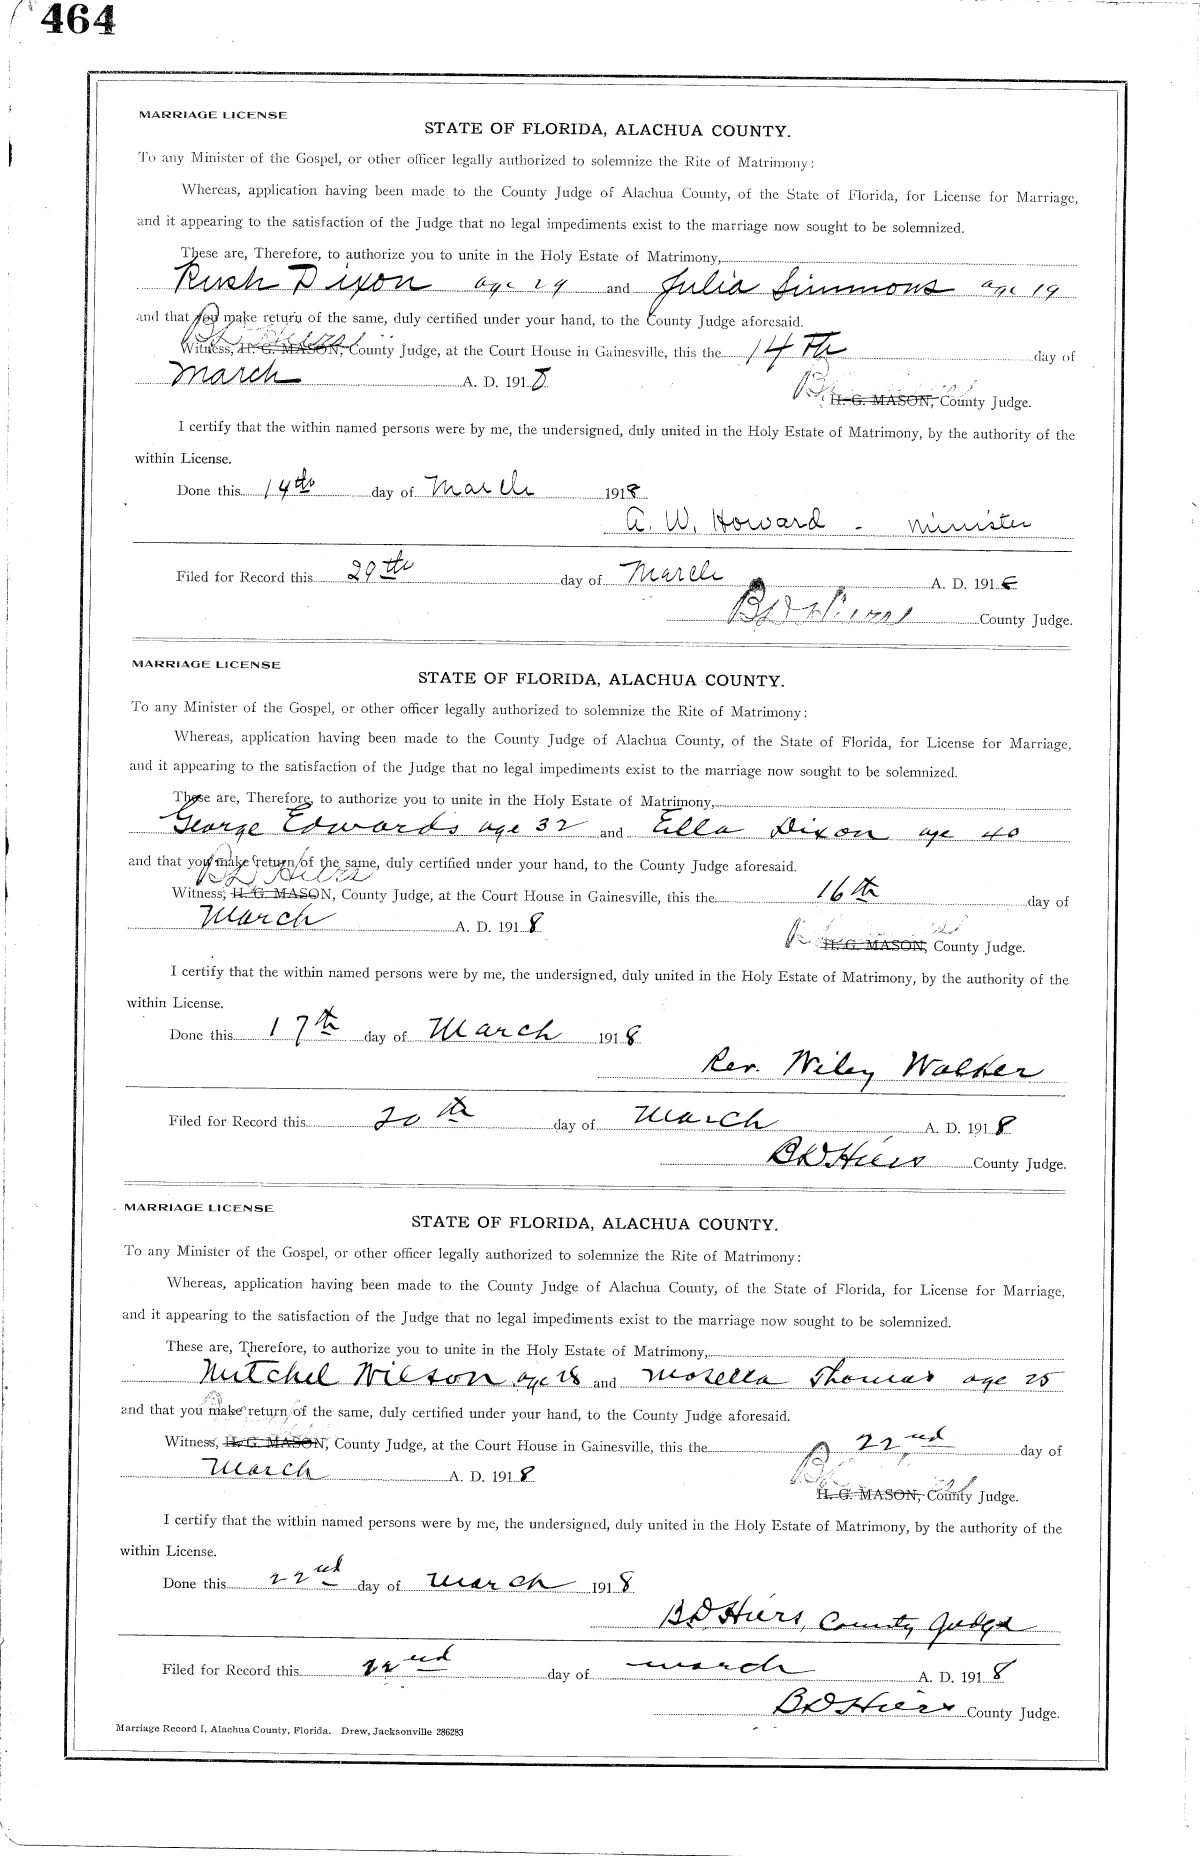 464
MARRIAGE LICENSE
STATE OF FLORIDA, ALACHUA COUNTY.
To any Minister of the Gospel, or other officer legally authorized to solemnize the Rite of Matrimony:
Whereas, application having been made to the County Judge of Alachua County, of the State of Florida, for License for Marriage,
and it appearing to the satisfaction of the Judge that no legal impediments exist to the marriage now sought to be solemnized.
These are, Therefore, to authorize you to unite in the Holy Estate of Matrimony,
Rush Dixon age 29 and Julia Simmons age 19
and that you make return of the same, duly certified under your hand, to the County Judge aforesaid.
BD Hiers
Witness, H. G. MASON, County Judge, at the Court House in Gainesville, this the 14th day of
March A. D. 1918
H. G. MASON, County Judge.
I certify that the within named persons were by me, the undersigned, duly united in the Holy Estate of Matrimony, by the authority of the
within License.
Done this 14th day of March 1918
A. W. Howard - minister
Filed for Record this 29th day of March A. D. 191
BD Hiers County Judge.
MARRIAGE LICENSE
STATE OF FLORIDA, ALACHUA COUNTY.
To any Minister of the Gospel, or other officer legally authorized to solemnize the Rite of Matrimony:
Whereas, application having been made to the County Judge of Alachua County, of the State of Florida, for License for Marriage,
and it appearing to the satisfaction of the Judge that no legal impediments exist to the marriage now sought to be solemnized.
These are, Therefore, to authorize you to unite in the Holy Estate of Matrimony,
George Edwards age 32 and Ella Dixon age 40
and that you make return of the same, duly certified under your hand, to the County Judge aforesaid.
BD Hiers
Witness, H. G. MASON, County Judge, at the Court House in Gainesville, this the 16th day of
March A. D. 1918
H. G. MASON, County Judge.
I certify that the within named persons were by me, the undersigned, duly united in the Holy Estate of Matrimony, by the authority of the
within License.
Done this 17th day of March 1918
Rev. Wiley Walker
Filed for Record this 20th day of March A. D. 1918
BD Hiers County Judge.
MARRIAGE LICENSE
STATE OF FLORIDA, ALACHUA COUNTY.
To any Minister of the Gospel, or other officer legally authorized to solemnize the Rite of Matrimony:
Whereas, application having been made to the County Judge of Alachua County, of the State of Florida, for License for Marriage,
and it appearing to the satisfaction of the Judge that no legal impediments exist to the marriage now sought to be solemnized.
These are, Therefore, to authorize you to unite in the Holy Estate of Matrimony,
Mitchel Wilson age 28 and Mosella Thomas age 25
and that you make return of the same, duly certified under your hand, to the County Judge aforesaid.
Witness, H. G. MASON, County Judge, at the Court House in Gainesville, this the 22nd day of
March A. D. 1918
H. G. MASON, County Judge.
I certify that the within named persons were by me, the undersigned, duly united in the Holy Estate of Matrimony, by the authority of the
within License.
Done this 22nd day of March 1918
BD Hiers, County Judge
Filed for Record this 22nd day of March A. D. 1918
BD Hiers County Judge.
Marriage Record I, Alachua County, Florida. Drew, Jacksonville 286283